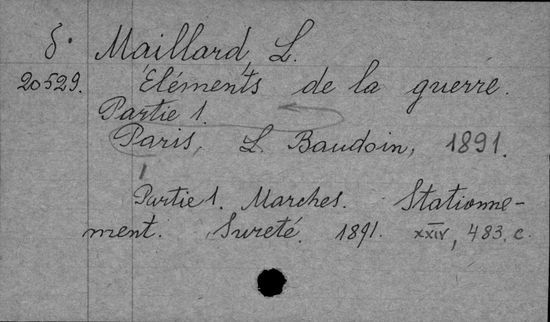 δ. Maillard, L.
20529. Eléments de la guerre.
Partie 1.
Paris, L. Baudoin, 1891.
1
Partie 1. Marches. Stationne-
ment. Sureté. 1891. XXIV, 483. c.